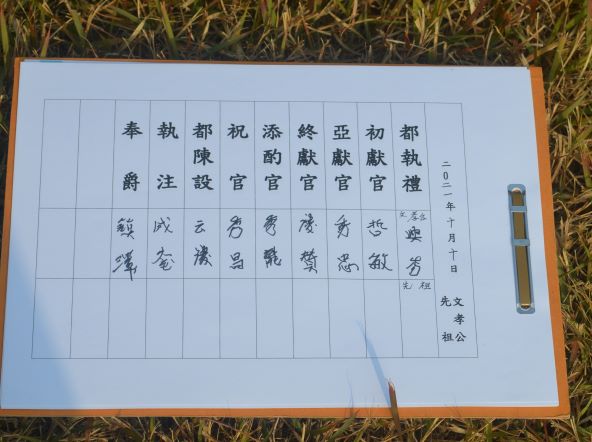 二〇二一年十月十日
文孝公
先祖
都執禮
文孝公
興秀
先祖
初獻官
哲敏
亞獻官
秀忠
終獻官
添酌官
秀龍
祝官
秀昌
都陳設
云
執注
成
奉爵
鎮澤